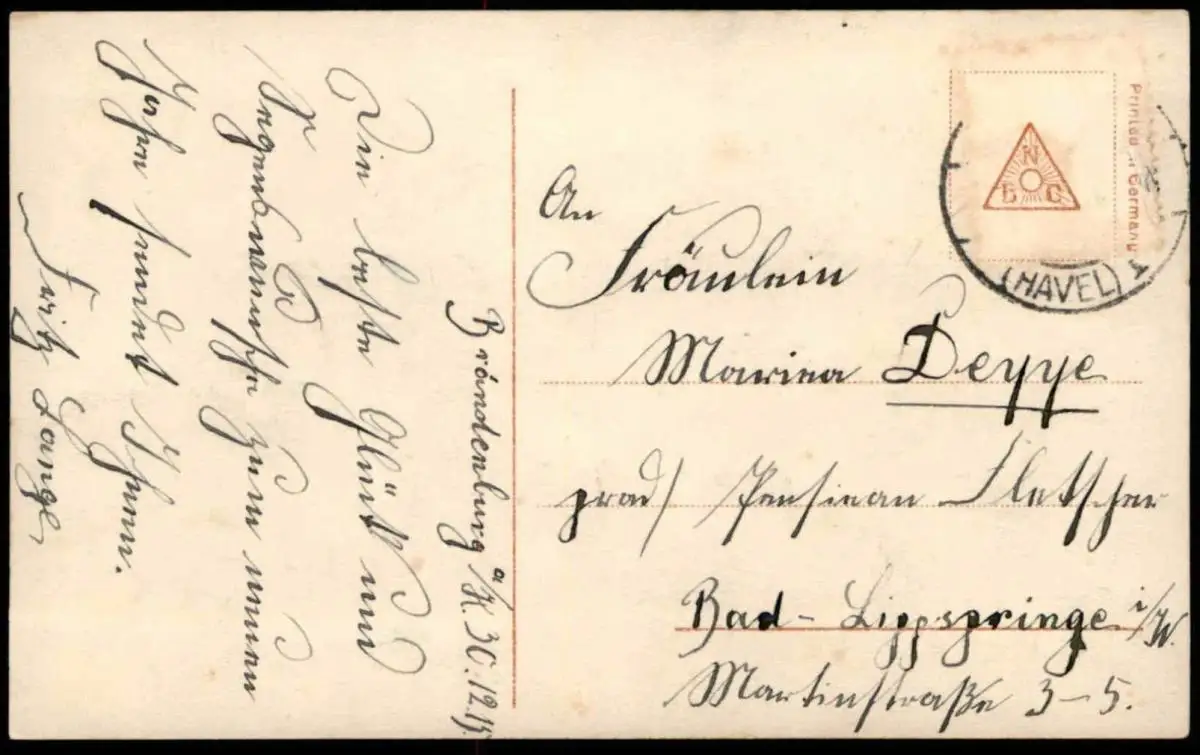 Brandenburg a/H. 30.12.15
Die beste Glück und
Segenswünsche zum neuen
Jahre sendet Ihnen.
Fritz Lange
An
Fräulein
Marina Deppe
Pension Fletscher
Bad-Lippspringe i/W.
Martinstraße 3-5.
N
B C
Printed in Germany
(HAVEL)